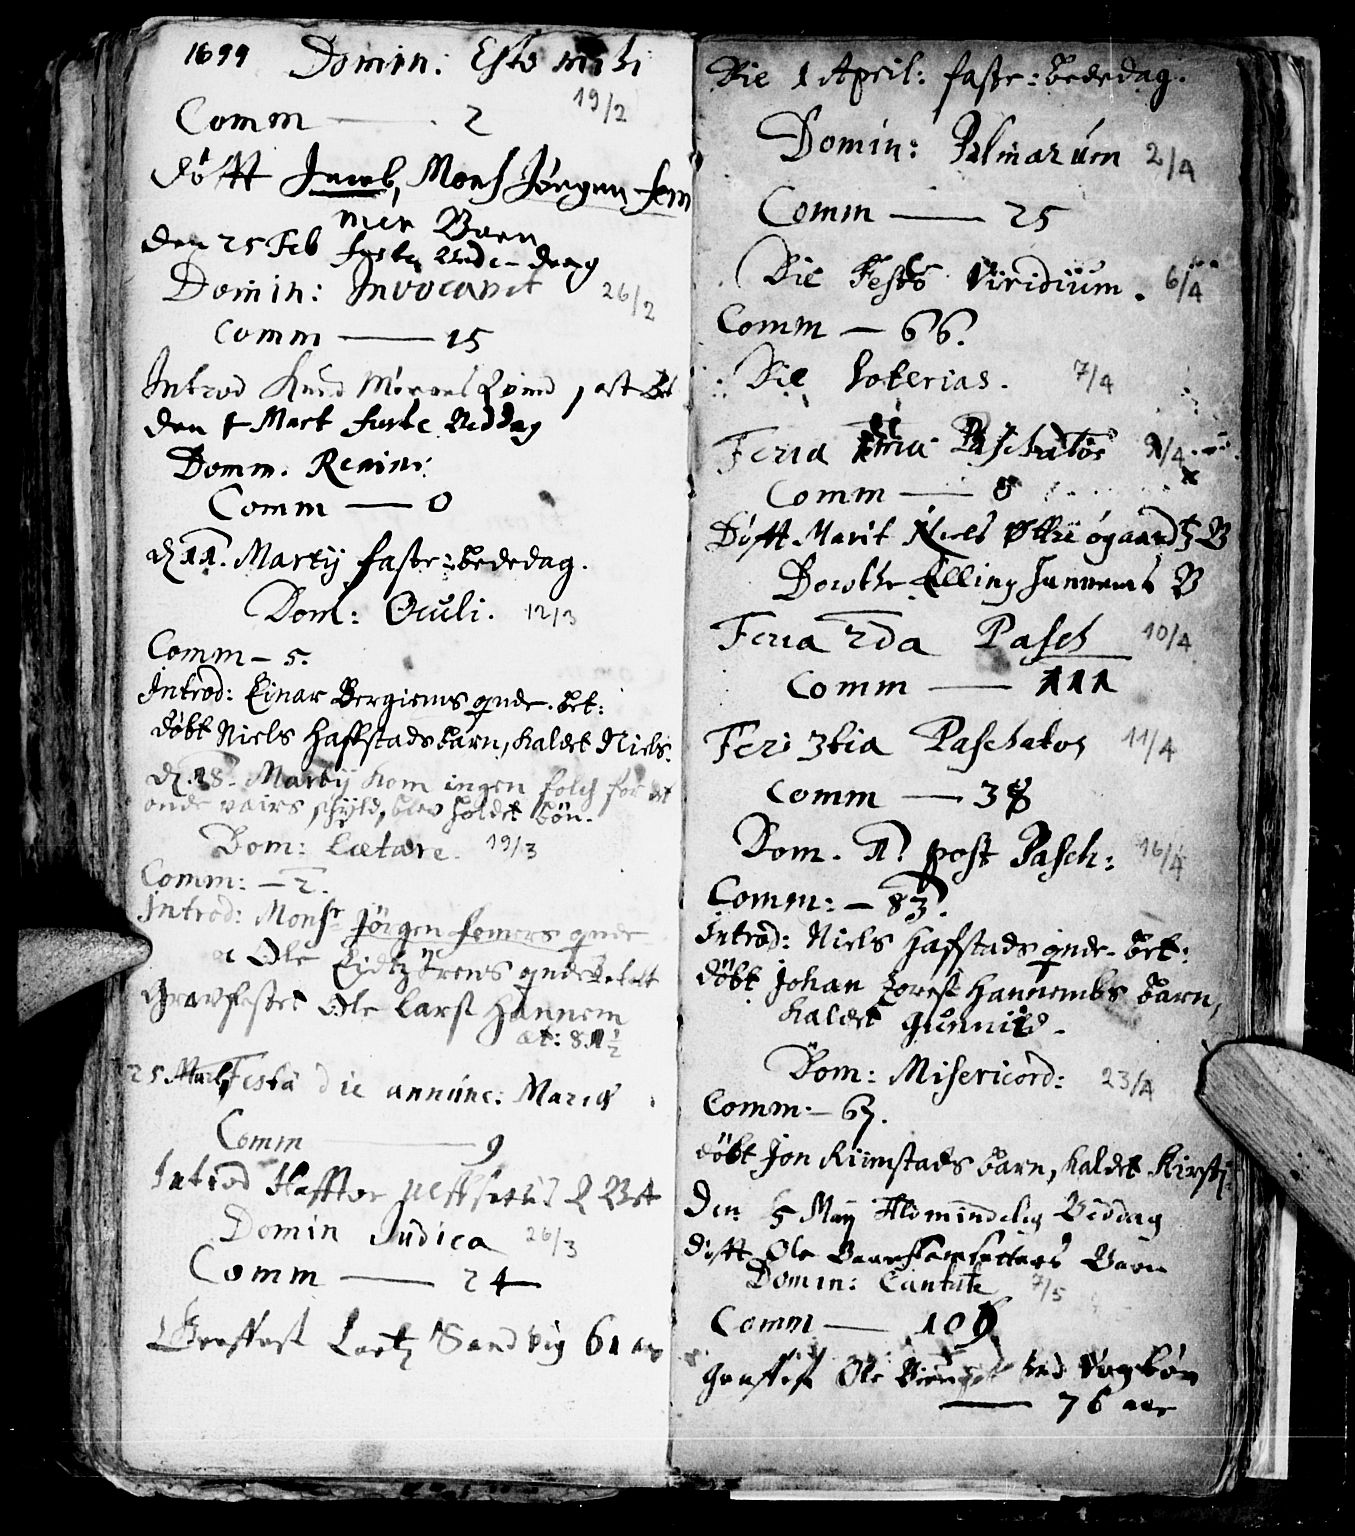 1699 Domin: Esto mihi
19/2
Comm — 2
døfft Jacob, Mons Jørgen Sem
mer Barn
den 25 Feb faste Bede-dag
Domin: Invocavit 26/2
Comm — 15
Introd Knud
den 1 Mart faste Beddag
Domin. Remini:
Comm — 0
d. 11. Martij faste-bededag.
Dom: Oculi. 12/3
Comm — 5.
Introd: Einar Bergiems qvnde. bet:
døbt Niels Haffstads barn, kaldet Niels.
d. 18. Martij kom ingen folch for det
onde vairs skyld, blev holdet bøn.
Dom: Lætare. 19/3
Comm: — 2.
Introd: Monsr Jörgen Semers qvnde
et Ole qvnde
Gravfæstet Ole Larss Hannem
æt: 81 1/2
25 Mart Festa die annunc: Mariæ
Comm — 9
Introd
Domin Judica 26/3
Comm — 24
Graffæst Lartz Sandvig 61 aar
Die 1 April: faste-bededag.
Domin: Palmarum 2/4
Comm — 25
Die Festo Viridium. 6/4
Comm — 66.
Die Soterias. 7/4
Feria 1ma Paschatos 9/4
Comm — 0
Døfft Marit Niels B
Dorothe Elling Hannems B
Feria 2da Pasch 10/4
Comm — 111
Feri 3tia Paschatos 11/4
Comm — 38
Dom. 1. post Pasch: 16/4
Comm: — 83.
Introd: Niels Hafstads qvnde. bet:
döbt Johan Hannembs barn,
kaldet Gunnild.
Dom: Misericord: 23/4
Comm: — 67.
döbt Jon Rimstads barn, kaldet Kirsti.
Den 5 Maij Almindelig Beddag
døfft Ole Barn
Domin: Cantate 7/5
Comm — 106
Graffest Ole
— 76 aar